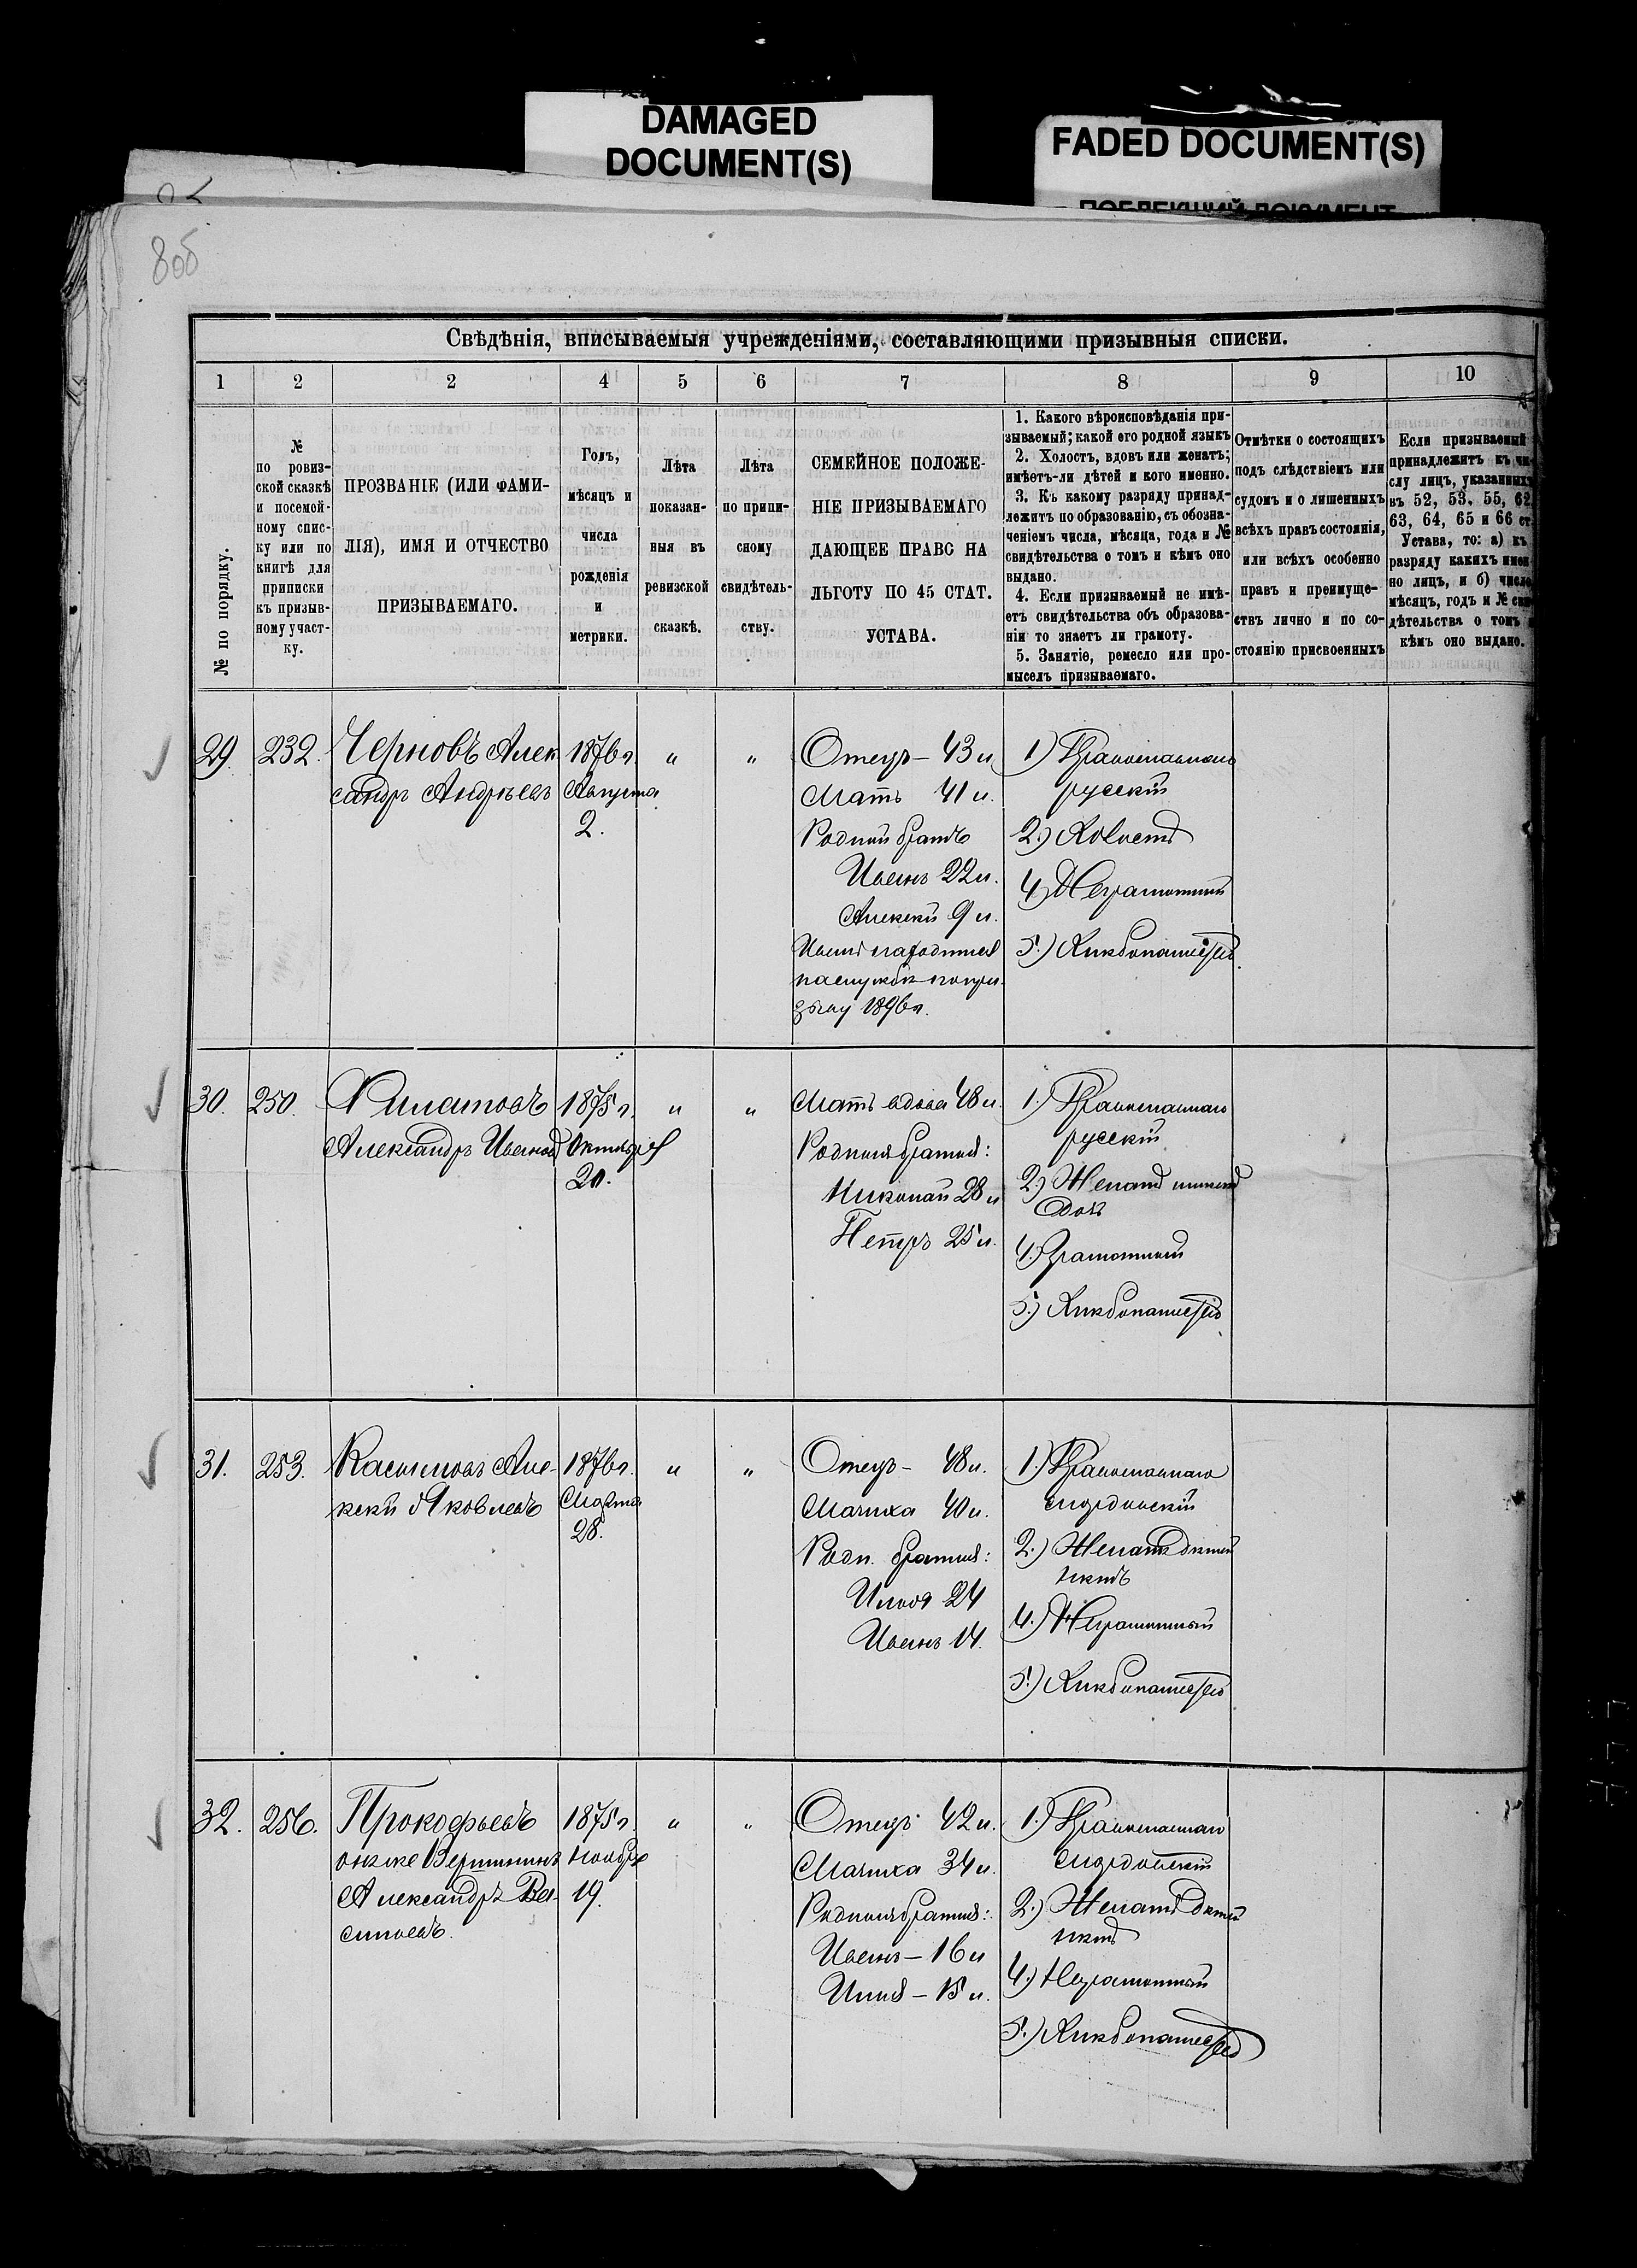 DAMAGED
DOCUMENT(S)
FADED DOCUMENT(S)
ПОБЛЕКШИЙ ДОКУМЕНТ
80б
Свѣдѣнія, вписываемыя учрежденіями, составляющими призывныя списки.
1 2 2 4 5 6 7 8 9 10
№ по порядку.
№
по ровиз-
ской сказкѣ
и посемей-
ному спис-
ку или по
книгѣ для
приписки
къ призыв-
ному участ-
ку.
ПРОЗВАНІЕ (ИЛИ ФАМИ-
ЛІЯ), ИМЯ И ОТЧЕСТВО
ПРИЗЫВАЕМАГО.
Годъ,
мѣсяцъ и
числа
рожденія
и
метрики.
Лѣта
показан-
ныя въ
ревизской
сказкѣ.
Лѣта
по припи-
сному
свидѣтель-
ству.
СЕМЕЙНОЕ ПОЛОЖЕ-
НІЕ ПРИЗЫВАЕМАГО
ДАЮЩЕЕ ПРАВО НА
ЛЬГОТУ ПО 45 СТАТ.
УСТАВА.
1. Какого вѣроисповѣданія при-
зываемый; какой его родной языкъ
2. Холостъ, вдовъ или женатъ;
имѣетъ-ли дѣтей и кого именно.
3. Къ какому разряду принад-
лежитъ по образованію, съ обозна-
ченіемъ числа, мѣсяца, года и №
свидѣтельства о томъ и кѣмъ оно
выдано.
4. Если призываемый не имѣ-
етъ свидѣтельства объ образова-
ніи то знаетъ ли грамоту.
5. Занятіе, ремесло или про-
мыселъ призываемаго.
Отмѣтки о состоящихъ
подъ слѣдствіемъ или
судомъ и о лишенныхъ
всѣхъ правъ состоянія,
или всѣхъ особенно
правъ и преимуще-
ствъ лично и по со-
стоянію присвоенныхъ
Если призываемый
принадлежитъ къ чи-
слу лицъ, указанныхъ
въ 52, 53, 55, 62
63, 64, 65 и 66 ст
Устава, то: а) къ
разряду какихъ имен
но лицъ, и б) число
мѣсяцъ, годъ и № сви
дѣтельства о томъ и
кѣмъ оно выдано.
29. 232. Черновъ Алек
сандръ Андреевъ
1876 г.
Августа
2.
" "
Отецъ – 43 л.
Мать 41 л.
Родной братъ
Иванъ 22 л.
Алексѣй 9 л.
Иванъ находится
на службѣ по при-
зыву 1896 г.
1) Православнаго
русскій
2.) Холостъ
4) Неграмотный
5.) Хлѣбопашество
30. 250. Филатовъ
Александръ Ивановъ
1875 г.
Октября
20.
" "
Мать вдова 48 л.
Родныя братья:
Николай 28 л
Петръ 25 л.
1.) Православнаго
русскій
2.) Женатъ имѣетъ
дочь
4.) Грамотный
5.) Хлѣбопашество
31. 253. Касимовъ Але-
ксѣй Яковлевъ
1876 г.
Марта
28.
" "
Отецъ – 48 л.
Мачиха 40 л.
Родн. братья:
Илья 24
Иванъ 14.
1.) Православнаго
мордовскій
2.) Женатъ дѣтей
нѣтъ
4.) Неграмотный
5.) Хлѣбопашество
32. 256. Прокофьевъ
онже Вершининъ
Александръ Ва-
сильевъ.
1875 г.
Ноября
19.
" "
Отецъ 42 л.
Мачиха 34 л.
Родныя братья:
Иванъ – 16 л
Илья – 15 л.
1.) Православнаго
мордовскій
2.) Женатъ дѣтей
нѣтъ
4.) Неграмотный
5.) Хлѣбопашество